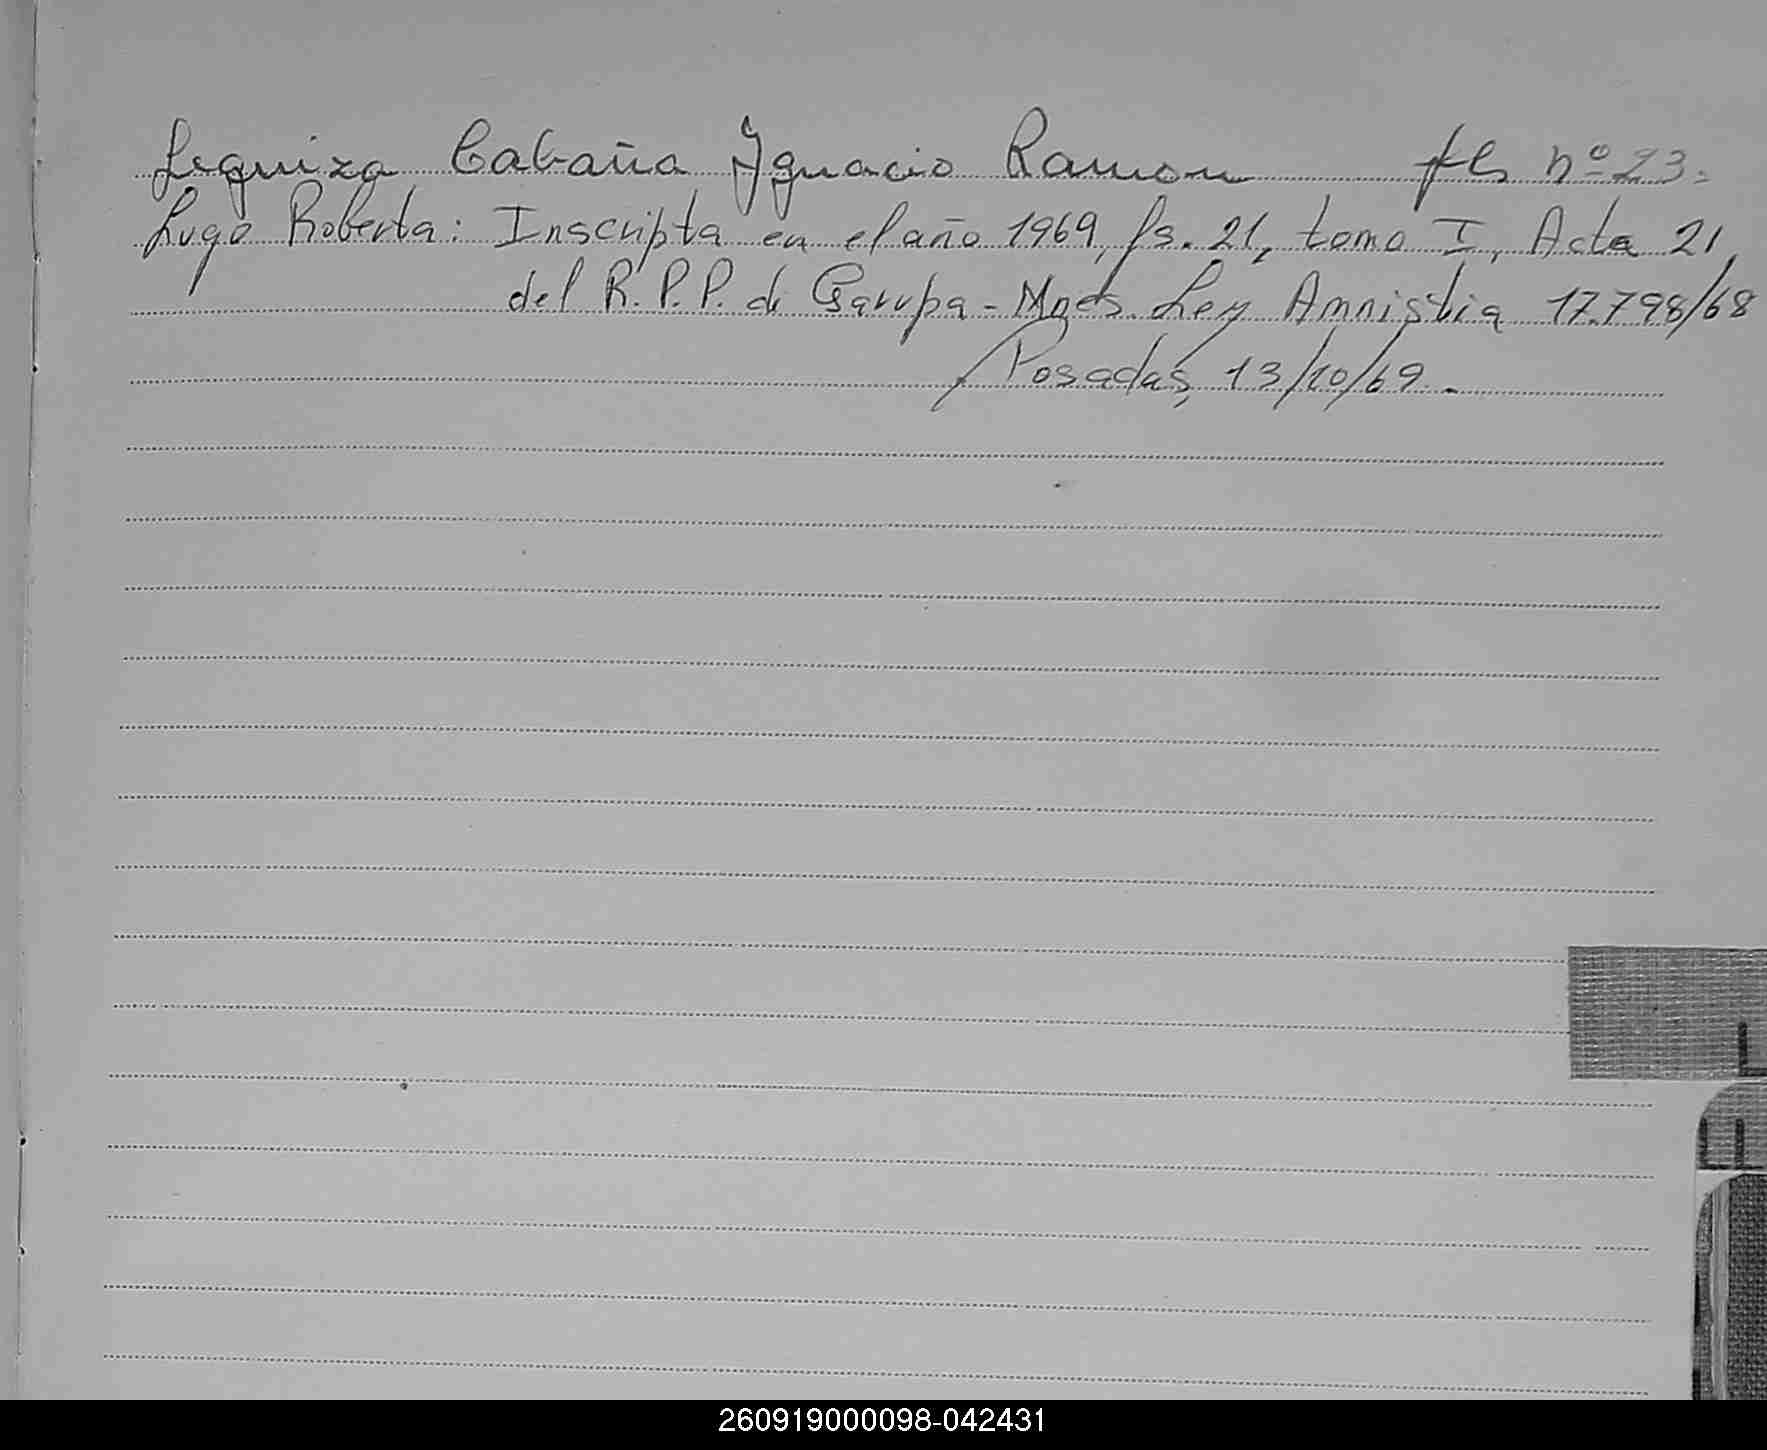 Leguiza Cabaña Ygnacio Ramon fls nº 23.
Lugo Roberta: Inscripta en el año 1969, fs. 21, tomo I, Acta 21,
del R. P. P. de Garupa - Mnes. Ley Amnistia 17.798/68
Posadas, 13/10/69.
L
E
260919000098-042431